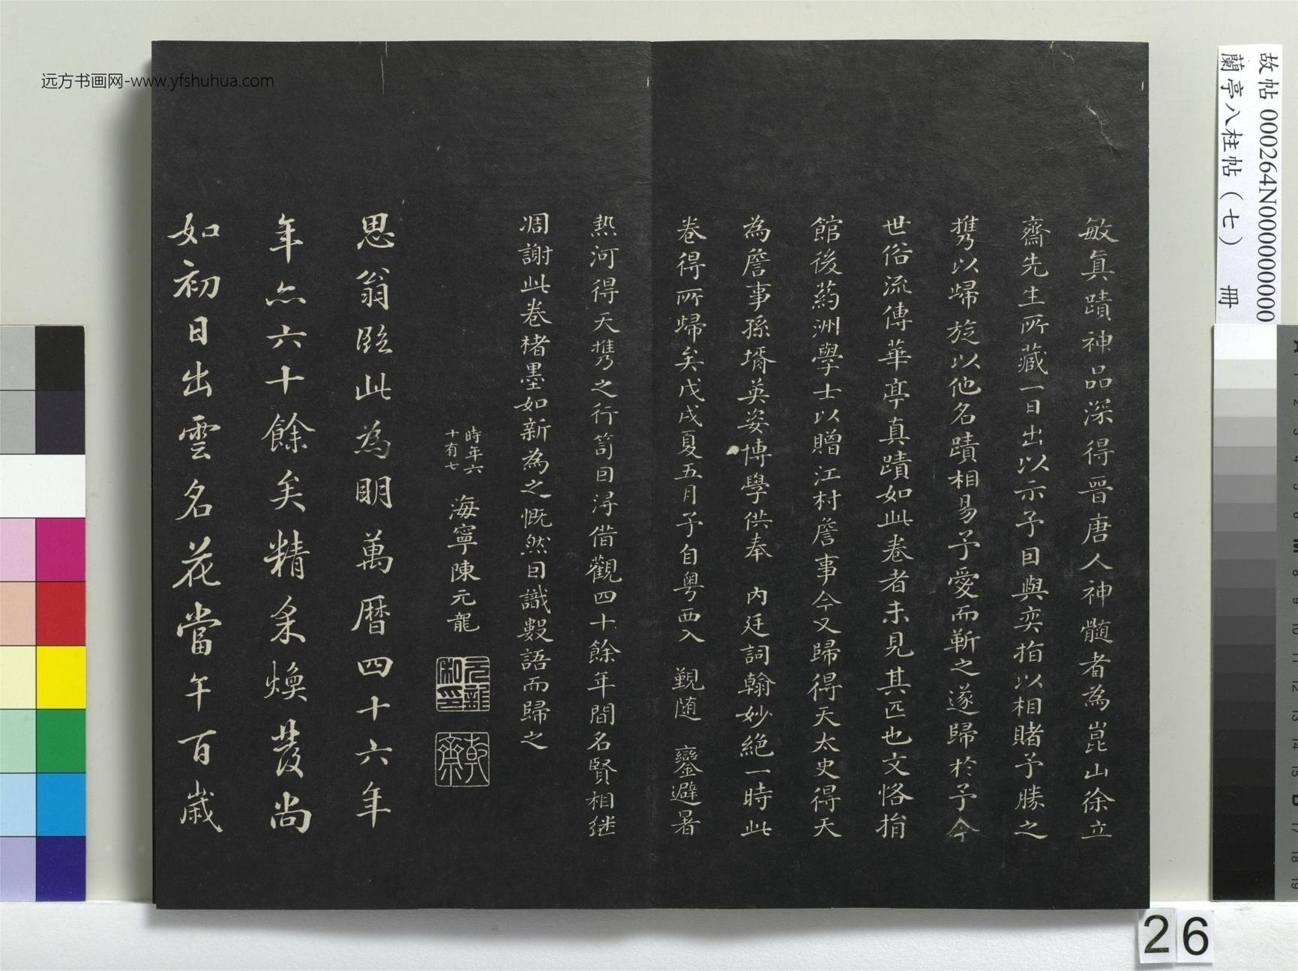 敏真蹟神品深得晉唐人神髓者為崑山徐立
齋先生所藏一日出以示予曰與奕指以相賭予勝之
攜以歸旋以他名蹟相易予愛而靳之遂歸於予今
世俗流傳華亭真蹟如此卷者未見其匹也文恪捐
館後葯洲學士以贈江村詹事今又歸得天太史得天
為詹事孫壻英姿博學供奉 內廷詞翰妙絕一時此
卷得所歸矣戊戌夏五月予自粵西入 覲隨 鑾避暑
熱河得天攜之行笥因得借觀四十餘年間名賢相继
凋謝此卷楮墨如新為之慨然因識數語而歸之
時年六十有七 海寧陳元龍
元龍私印
乾齋
思翁臨此為明萬曆四十六年
年亦六十餘矣精采煥發尚
如初日出雲名花當午百歲
远方书画网-www.yfshuhua.com
故帖 000264N000000000
蘭亭八柱帖（七） 冊
26